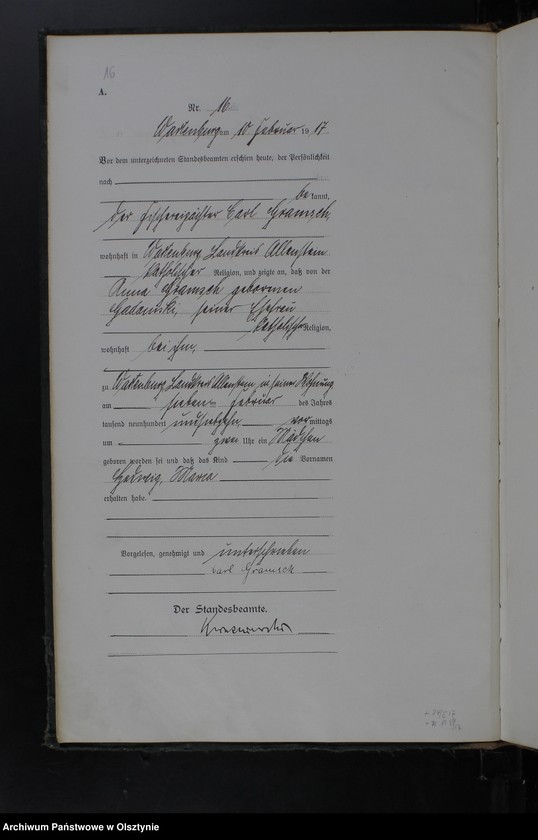 16
A.
Nr. 16
Wartenburg am 10 Februar 1917
Vor dem unterzeichneten Standesbeamten erschien heute, der Persönlichkeit
nach
bekannt,
der Fischereipächter Carl Gramsch,
wohnhaft in Wartenburg Landkreis Allenstein
katholischer Religion, und zeigte an, daß von der
Anna Gramsch geborenen
seiner Ehefrau
katholischer Religion,
wohnhaft bei ihm,
zu Wartenburg, Landkreis Allenstein, in seiner Wohnung
am sieben Februar des Jahres
tausend neunhundert undsiebzehn vormittags
um zwei Uhr ein Mädchen
geboren worden sei und daß das Kind die Vornamen
Hedwig, Maria
erhalten habe.
Vorgelesen, genehmigt und unterschrieben
Carl Gramsch
Der Standesbeamte.
Archiwum Państwowe w Olsztynie